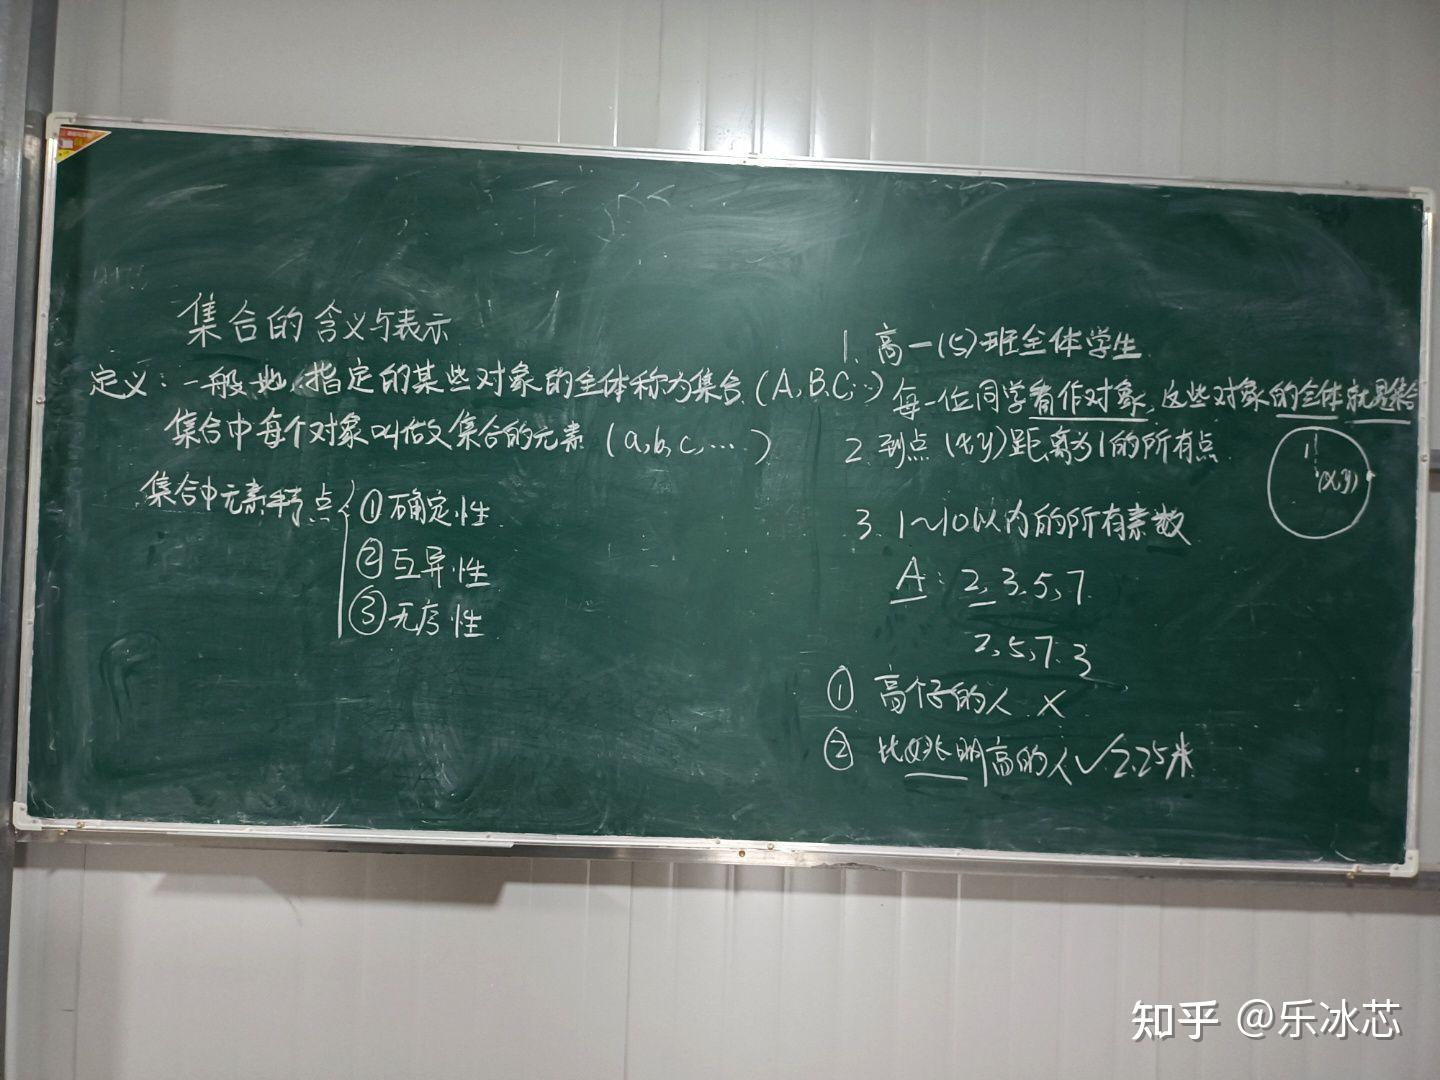 集合的含义与表示
定义：一般地，指定的某些对象的全体称为集合.（A,B,C,…）
集合中每个对象叫做集合的元素（a,b,c,…）
集合中元素特点
①确定性.
②互异性
③无序性
1. 高一(5)班全体学生
每一位同学看作对象，这些对象的全体就是集合
2. 到点(x,y)距离为1的所有点
1
(x,y)
3. 1~10以内的所有素数
A：2,3,5,7
2,5,7,3
① 高个子的人 ×
② 比姚明高的人✓2.25米
知乎 @乐冰芯